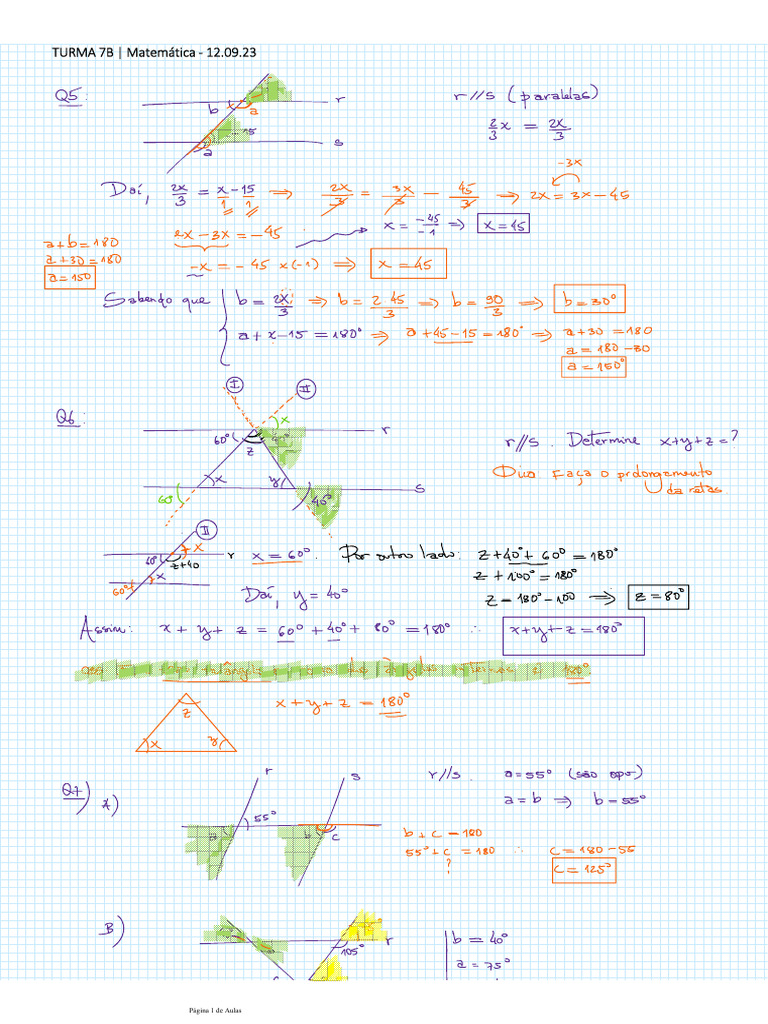 TURMA 7B | Matemática - 12.09.23
Q5:
r
b
a
- 15
a
s
r//s (paralelas)
2/3 x = 2x/3
-3x
Daí, 2x/3 = x-15 ⇒ 2x/3 = 3x/3 - 45/3 ⇒ 2x = 3x - 45
1 1
2x - 3x = -45
x = -45/-1 ⇒ x=45
-x = -45 x(-1) ⇒ x = 45
a+b=180
a+30=180
a=150
Sabendo que b = 2x/3 ⇒ b = 2.45/3 ⇒ b = 90/3 ⇒ b=30°
a + x-15 = 180° ⇒ a+45-15=180° ⇒ a+30=180
a=180-30
a=150°
Q6:
I
II
x
r
60°
40°
z
x
y
s
60°
40°
r//s. Determine x+y+z=?
Dica Faça o prolongamento
da retas
II
x
60°
r
z+40
x
60°
x = 60°. Por outro lado: z+40°+60°=180°
z+100°=180°
z=180°-100 ⇒ z=80°
Daí, y=40°
Assim: x+y+z = 60°+40°+80°=180° ∴ x+y+z=180°
180°.
x+y+z=180°
z
x
y
Q7) A)
r
s
55°
a
b
c
r//s. a=55° (são opv)
a=b ⇒ b=55°
b+c=180
55°+c=180 ∴ c=180-55
?
c=125°
B)
r
105°
b=40°
a=75°
Página 1 de Aulas